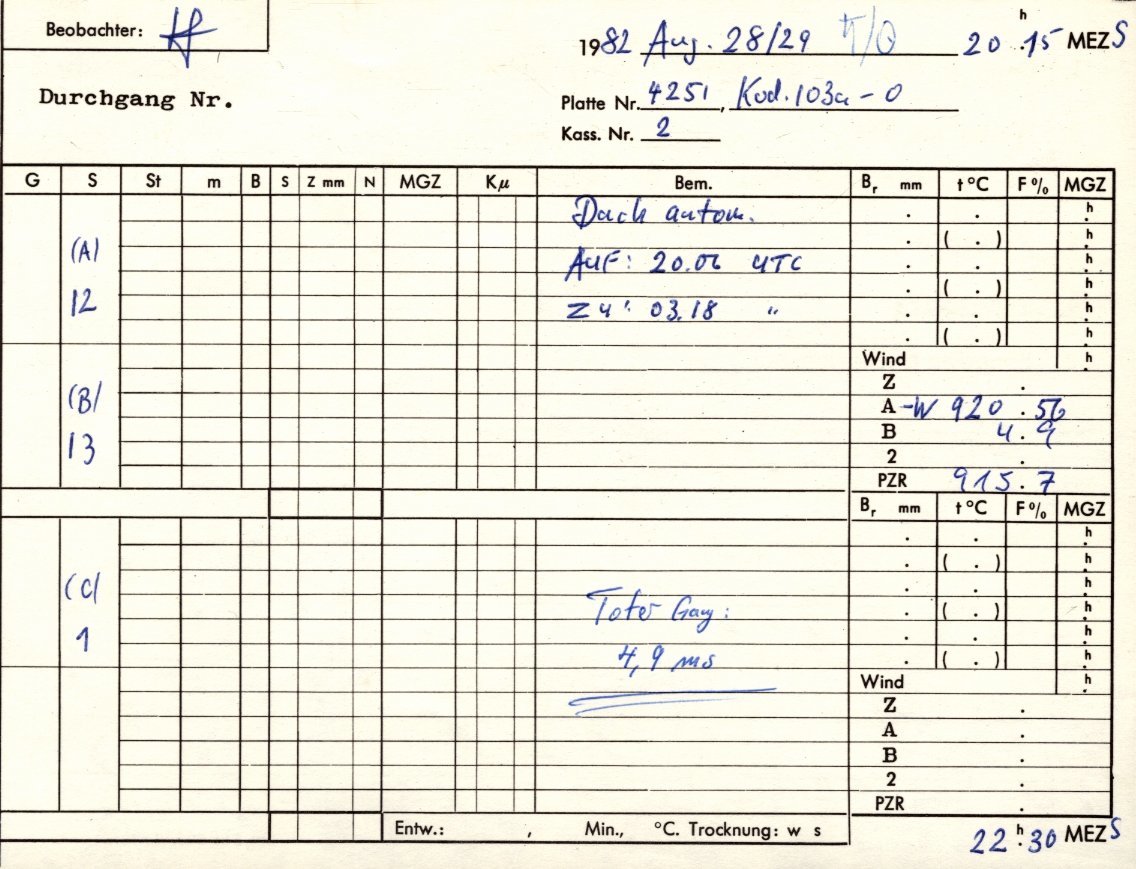 Beobachter:
1982 Aug. 28/29 20 h .15 MEZS
Durchgang Nr.
Platte Nr. 4251, Kod. 103a-0
Kass. Nr. 2
G S St m B S Z mm N MGZ Kμ Bem. Br mm t°C F% MGZ
Dach autom. . . h.
(A) . ( . ) h.
AUF: 20.06 UTC . . h.
12 . ( . ) h.
Zu: 03.18 " . . h.
. ( . ) h.
Wind h.
Z .
(B) A -W 920 . 56
B 4 . 9
13 2 .
PZR 915 . 7
Br mm t°C F% MGZ
. . h.
. ( . ) h.
(C) . . h.
Toter Gang: . ( . ) h.
1 . . h.
4,9 ms . ( . ) h.
Wind h.
Z .
A .
B .
2 .
PZR .
Entw.: , Min., °C. Trocknung: w s
22 h .30 MEZS